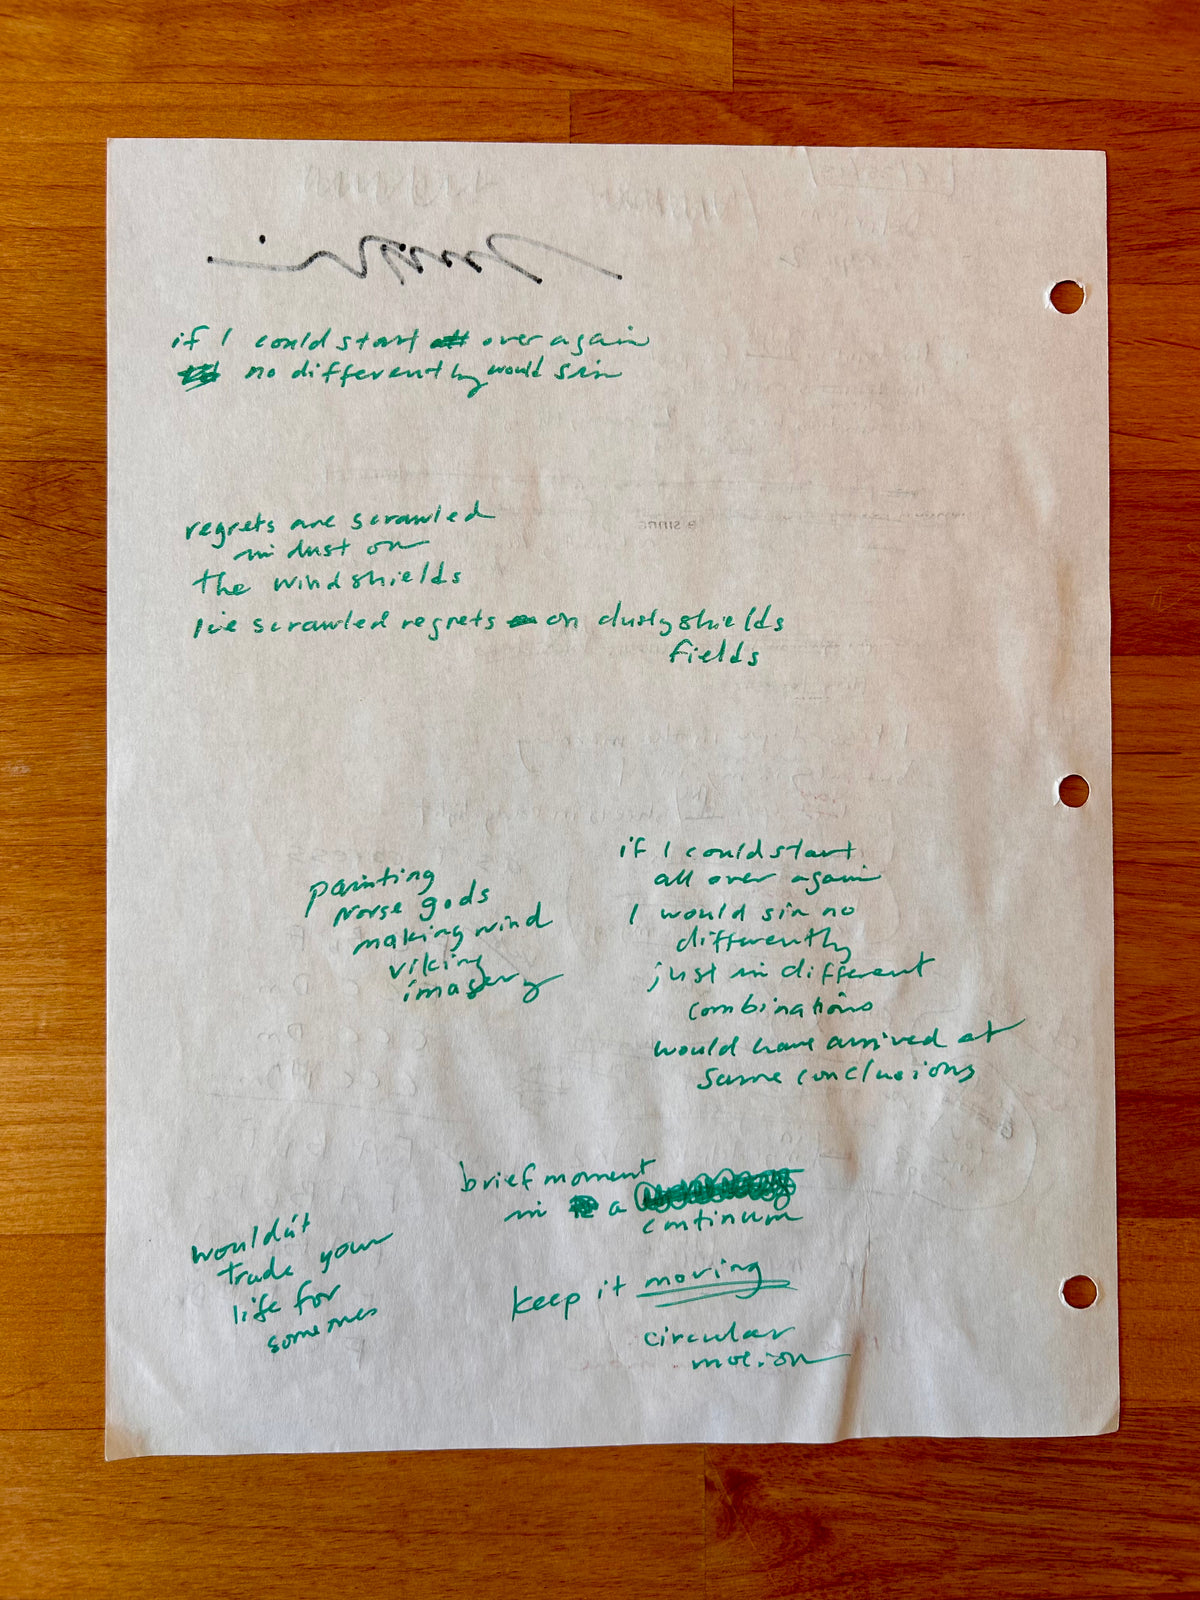 if I could start over again
no differently would sin
regrets are scrawled
in dust on
the windshields
I've scrawled regrets on dusty shields
fields
painting
norse gods
making wind
viking
imagery
if I could start
all over again
I would sin no
differently
just in different
combinations
would have arrived at
same conclusions
brief moment
in a
continuum
wouldn't
trade your
life for
keep it moving
circular
motion